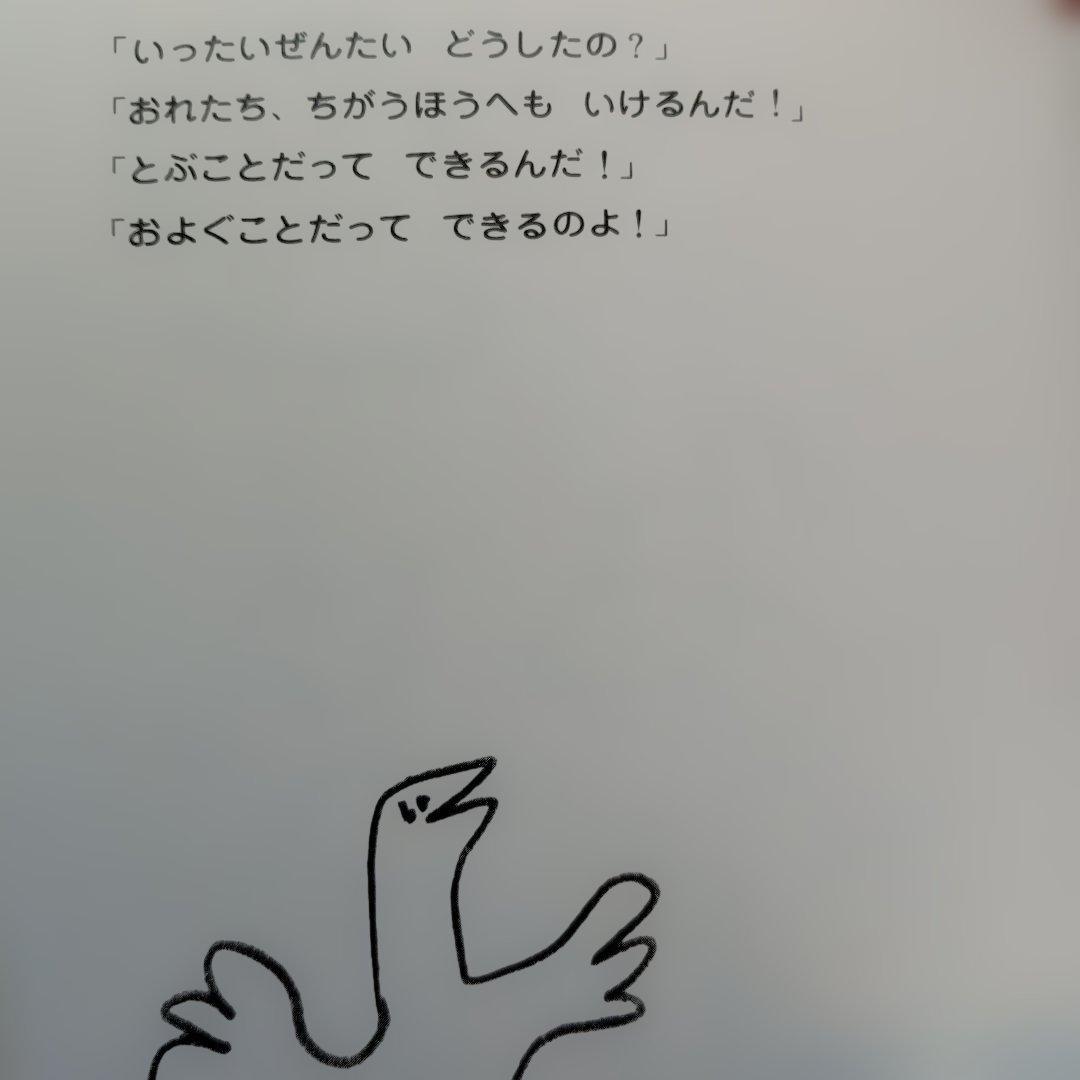 「いったいぜんたい　どうしたの？」
「おれたち、ちがうほうへも　いけるんだ！」
「とぶことだって　できるんだ！」
「およぐことだって　できるのよ！」